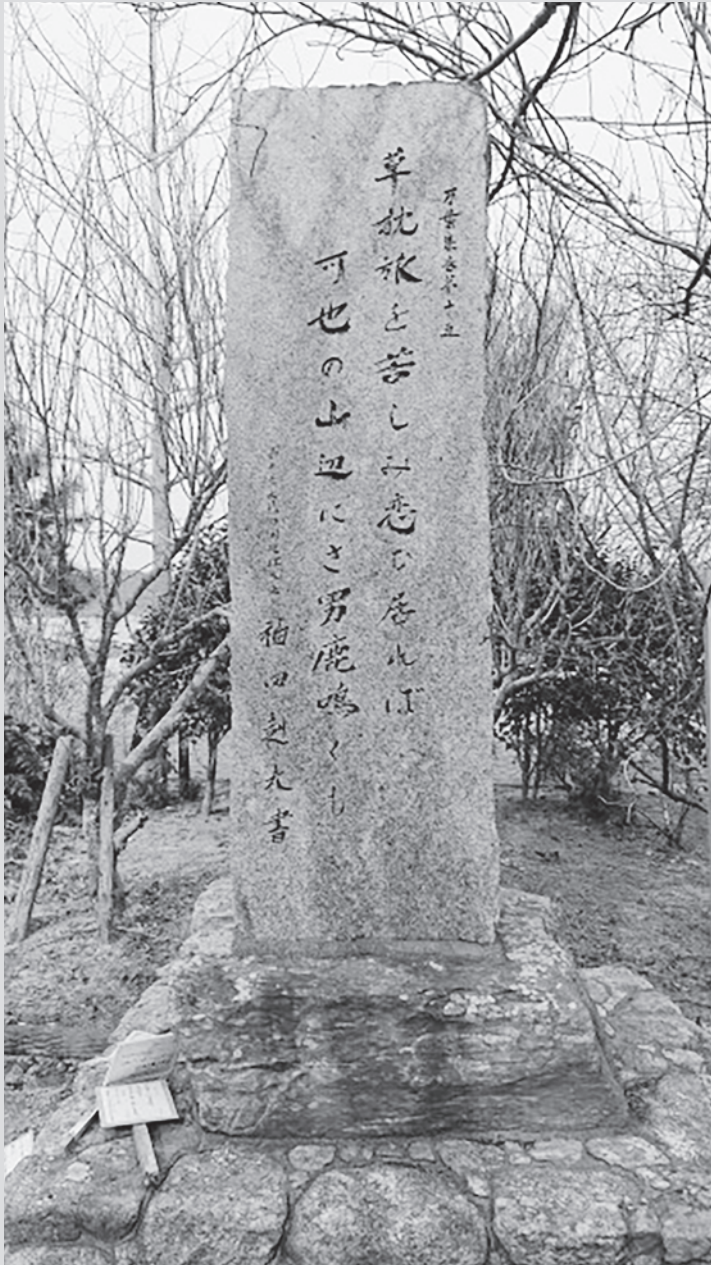 万葉集巻第十五
草枕旅を苦しみ恋ひ居れば
可也の山辺にさ男鹿鳴くも
書